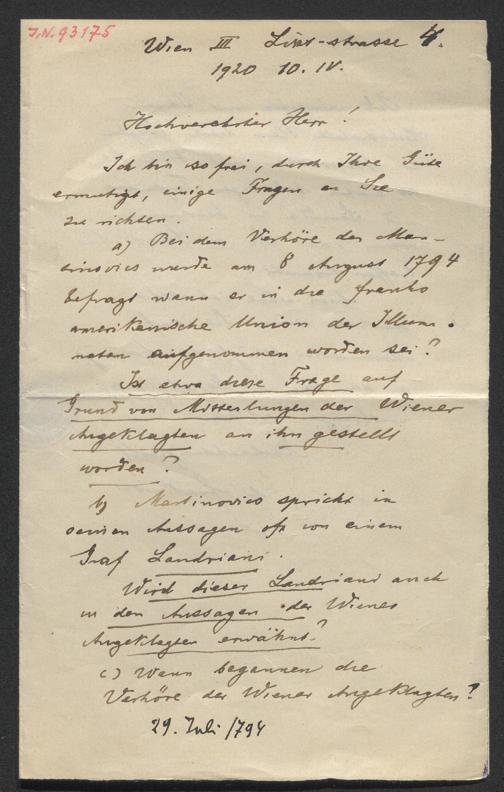 J.N. 93175
Wien III Liszt-strasse 4.
1920 10. IV.
Hochverehrter Herr!
Ich bin so frei, durch Ihre Güte
ermutigt, einige Fragen an Sie
zu richten.
a) Bei dem Verhöre des Mar-
tinovics wurde am 8 August 1794
befragt wann er in die franko
amerikanische Union der Illumi-
naten aufgenommen worden sei?
Ist etwa diese Frage auf
Grund von Mitteilungen der Wiener
Angeklagten an ihn gestellt
worden?
b) Martinovics spricht in
seinen Aussagen oft von einem
Graf Landriani.
Wird dieser Landriani auch
in den Aussagen der Wiener
Angeklagten erwähnt?
c) Wann begannen die
Verhöre der Wiener Angeklagten?
29. Juli 1794